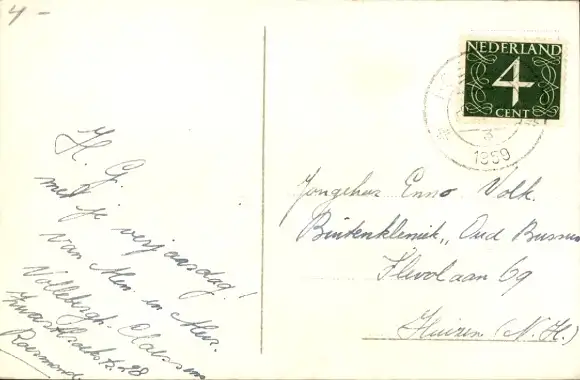 4 -
H. G.
met je verjaasdag!
van Men. en Mevr.
Vollebergh-Claessens
28
Roermond.
NEDERLAND
4
CENT
1959
Jongeheer Enno Volk.
Buitenkliniek „Oud Bussum
Flevolaan 69
Huizen (N.H.)